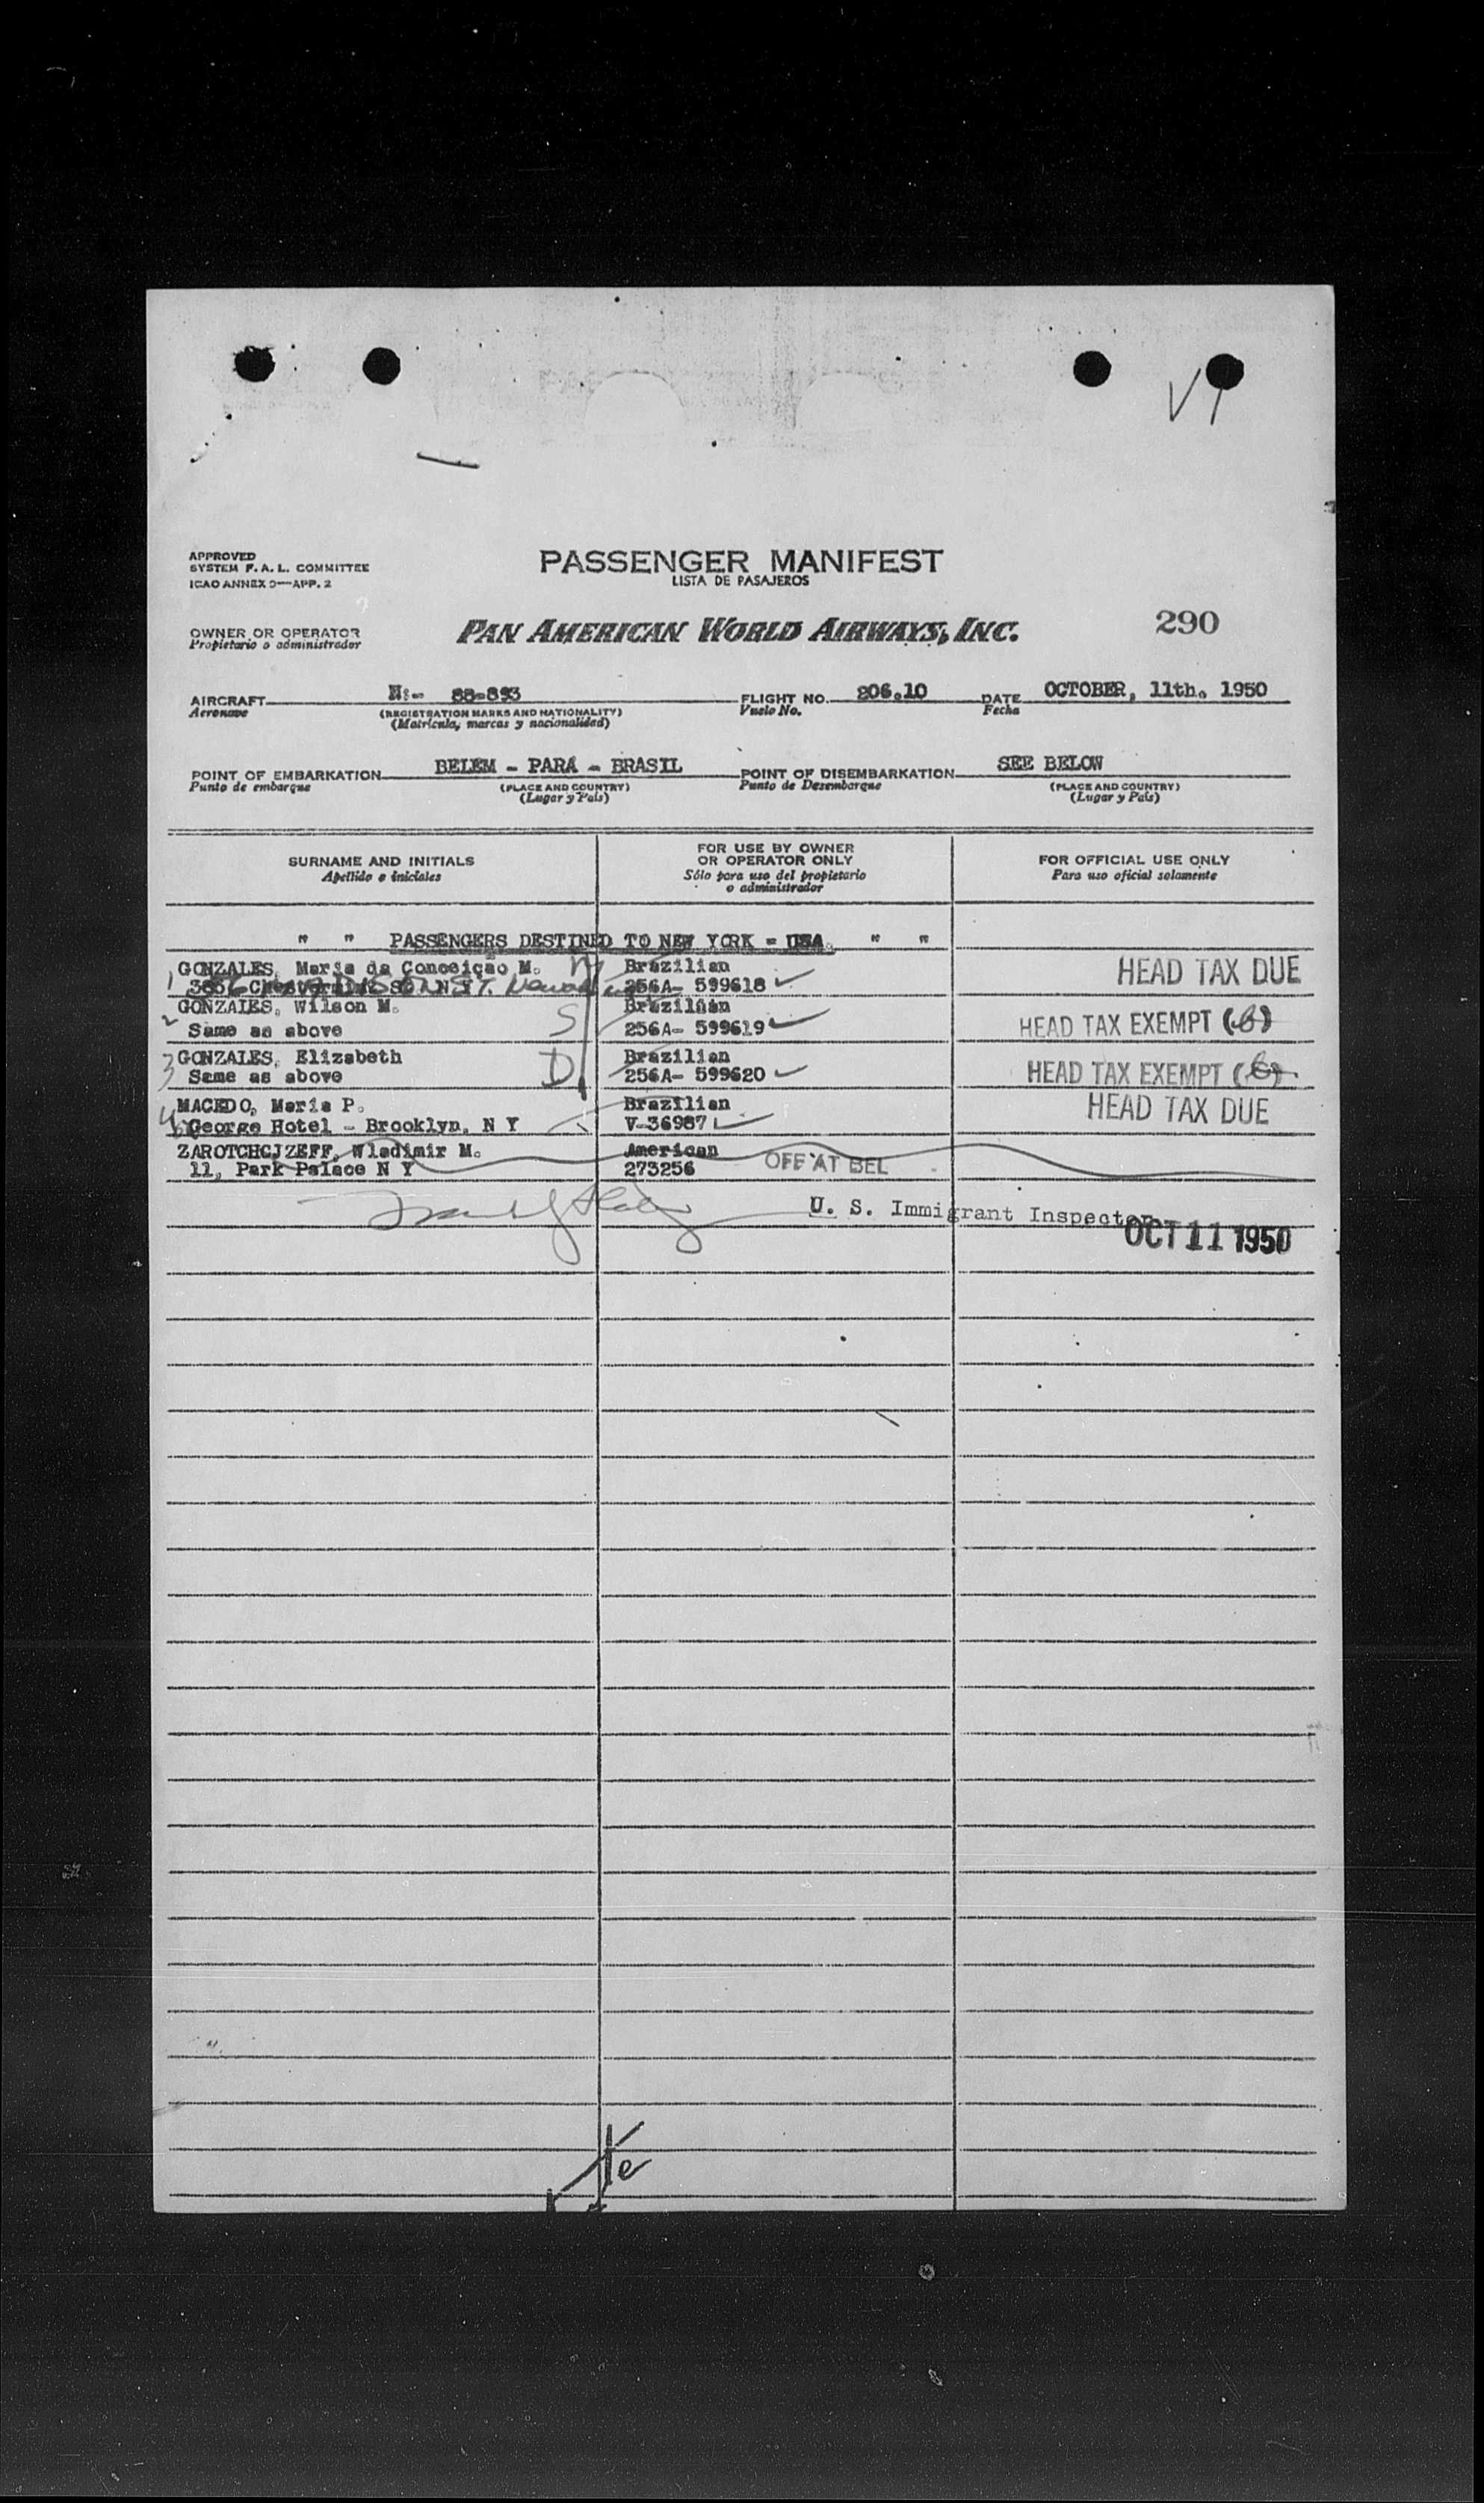 APPROVED
SYSTEM F. A. L. COMMITTEE
ICAO ANNEX 9—APP. 2
PASSENGER MANIFEST
LISTA DE PASAJEROS
OWNER OR OPERATOR
Propietario o administrador
PAN AMERICAN WORLD AIRWAYS, INC.
290
AIRCRAFT N:- 88-893 FLIGHT NO. 206.10 DATE OCTOBER, 11th. 1950
Aeronave (REGISTRATION MARKS AND NATIONALITY) Vuelo No. Fecha
(Matrícula, marcas y nacionalidad)
POINT OF EMBARKATION BELEM - PARÁ - BRASIL POINT OF DISEMBARKATION SEE BELOW
Punto de embarque (PLACE AND COUNTRY) Punto de Desembarque (PLACE AND COUNTRY)
(Lugar y País) (Lugar y País)
SURNAME AND INITIALS
Apellido e iniciales
FOR USE BY OWNER
OR OPERATOR ONLY
Sólo para uso del propietario
o administrador
FOR OFFICIAL USE ONLY
Para uso oficial solamente
" " PASSENGERS DESTINED TO NEW YORK - USA " "
GONZALES, Maria da Conceiçao M. Brazilian HEAD TAX DUE
1 256A- 599618
GONZALES, Wilson M. S Brazilian
2 Same as above 256A- 599619 HEAD TAX EXEMPT
3 GONZALES, Elizabeth D Brazilian
Same as above 256A- 599620 HEAD TAX EXEMPT
MACEDO, Maria P. Brazilian HEAD TAX DUE
4 George Hotel - Brooklyn, N Y V-36987
ZAROTCHCJZEFF, Wladimir M. American
11, Park Palace N Y 273256 OFF AT BEL
U. S. Immigrant Inspector
OCT 11 1950